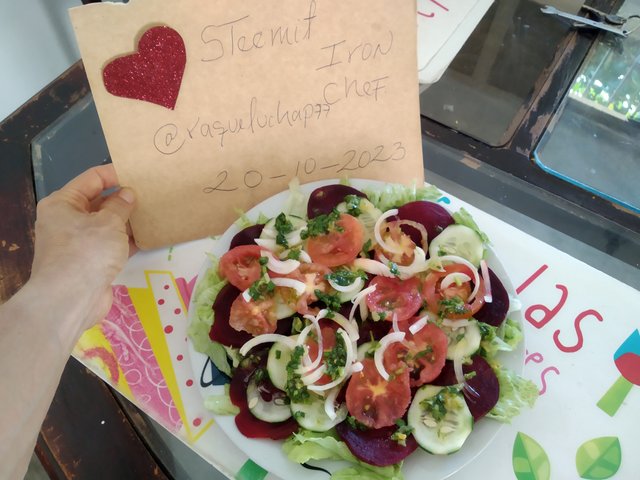 STeemit
Iron
Chef
@raqueluchap77
20-10-2023
las
es